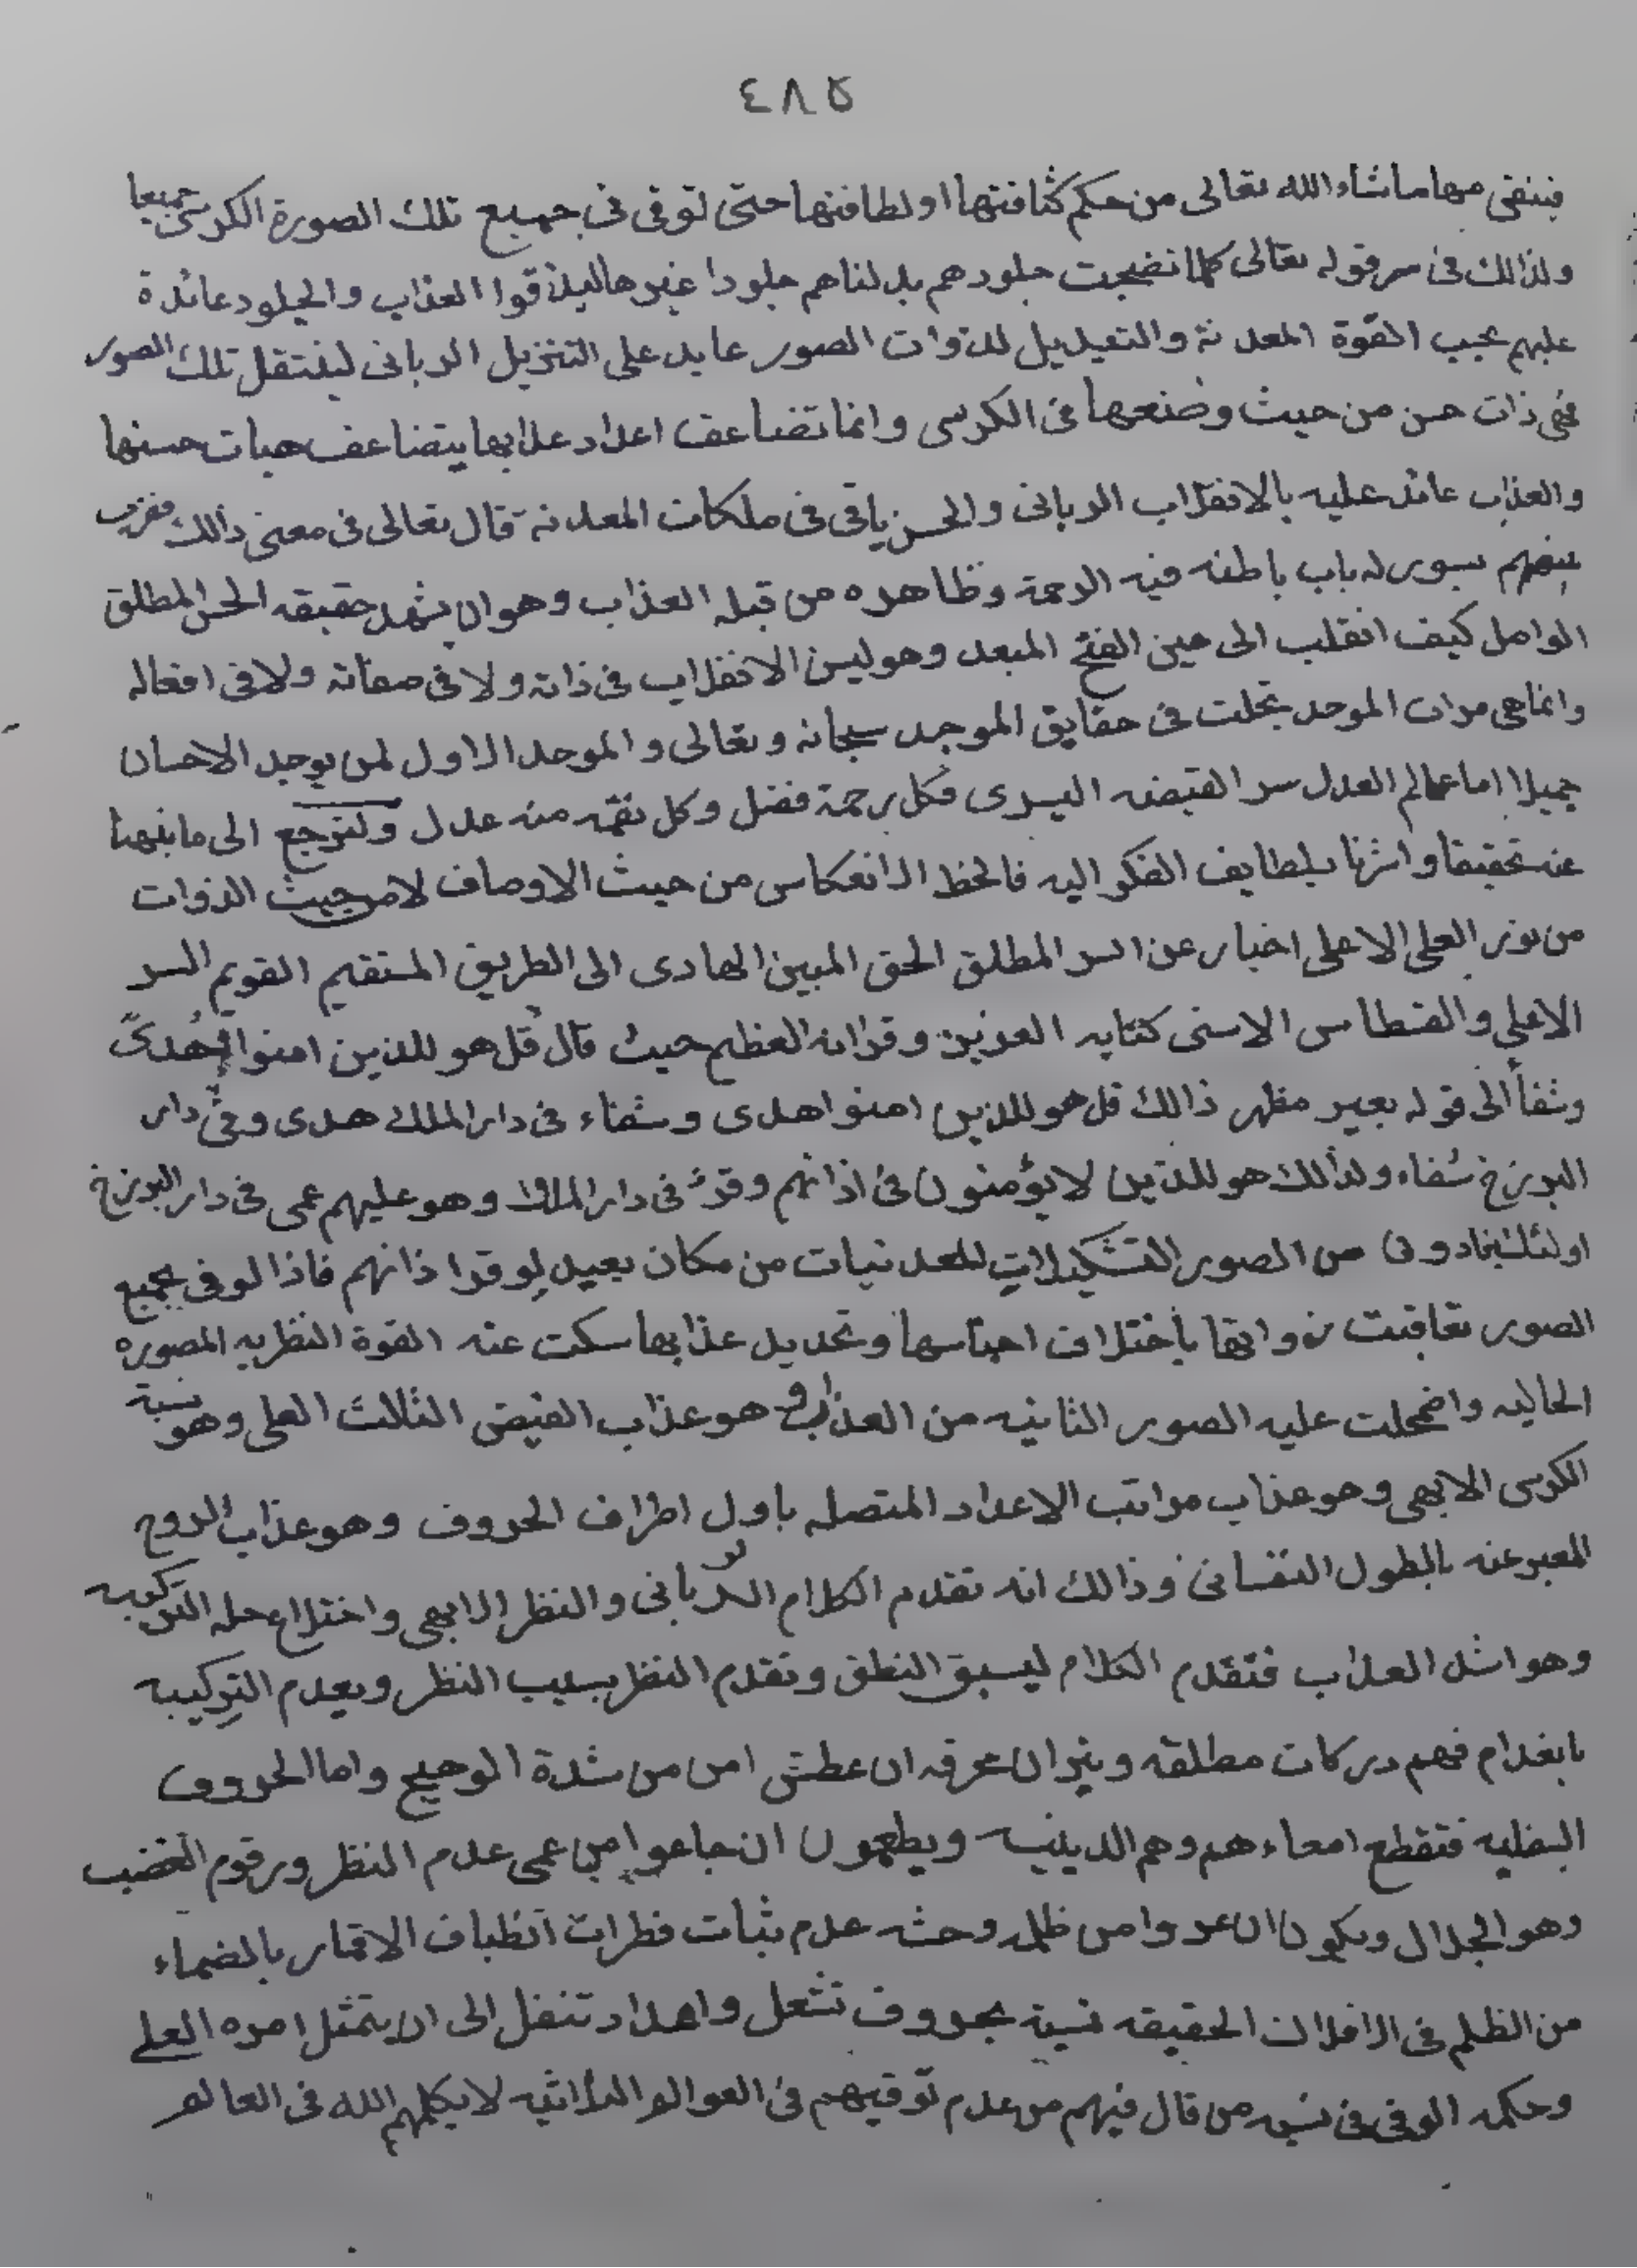 ٤٨٥
منها ما شاء الله تعالى من حكم كثافتها او لطافتها حتى توقى فى جميع تلك الصورة الكرسى جميعا
ولذالك فى سر قوله تعالى كلما نضجت جلودهم بدلناهم جلودا غيرها ليذوقوا العذاب والجلود عائدة
عليهم القوة المعدنة والتبديل لذوات الصور عايد على التنزيل الربانى لينتقل تلك الصور
فهى ذات حسن من حيث وضعها فى الكرسى وانما تضاعف اعداد عذابها يتضاعف هيات حسنها
والعذاب عائد عليه بالانقلاب الربانى والحسن باقى فى ملكات المعدنة قال تعالى فى معنى ذالك فضرب
بينهم بسور له باب باطنه فيه الرحمة وظاهره من قبله العذاب وهو ان يشهد حقيقه الحسن المطلق
الواصل كيف انقلب الى عين القبح المبعد وهو ليس الانقلاب فى ذاته ولا فى صفاته ولا فى افعاله
وانما هى مرات الموحد تجلت فى حقايق الموجد سبحانه وتعالى والموحد الاول لمن يوجد الاحسان
جميلا اما عالم العدل سر القبضه اليسرى فكل رحمة فضل وكل نقمه منه عدل ولنرجع الى ما
عنه تحقيقا واشرنا بلطايف الفكر اليه فالحظ الانعكاس من حيث الاوصاف لا من حيث الذوات
من نور العلى الاعلى اخبار عن السر المطلق الحق المبين الهادى الى الطريق المستقيم القويم السر
الاعلي والقسطاس الاسنى كتابه العزيز وقرانه العظيم حيث قال قل هو للذين امنوا هدىً
وشفأ الى قوله بعيد مظهر ذالك قل هو للذين امنوا هدى وشفاء فى دار الملك هدى وفى دار
البرزخ شفاء ولذالك هو للذين لا يؤمنون فى اذانهم وقرٌ فى دار الملك وهو عليهم عمى فى دار البرزخ
اولئك ينادون من الصور التشكيلات للعدنيات من مكان بعيد لوقر اذانهم فاذا لوفى بجميع
الصور تعاقبت ذواتها باختلاف اجناسها وتحديد عذابها سكت عنه القوة النظريه المصوره
الحاليه واضمحلت عليه الصور الثانيه من العذاب وهو عذاب القبض الثالث العلى وهو نسبة
الكرسى الابهى وهو عذاب مراتب الاعداد المتصله باول اطراف الحروف وهو عذاب الروح
المعبر عنه بالطول النفسانى وذالك انه تقدم الكلام الربانى والنظر الابهى واختلاع حله التركيبه
وهو اشد العذاب فتقدم الكلام ليسبق النطق وتقدم النظر بسلب النظر وبعدم التركيبه
بانعدام فهم دركات مطلقه ونيران محرقه ان عطش امن من شدة الوهيج واما الحروف
السفليه فتقطع امعاءهم وهم الدينيه ويطعمون ان جاعوا من عمى عدم النظر وزقوم الغضب
وهو الجلال ويكون ان عروا من ظلمه وحشه عدم ثبات فطرات انطباف الاقمار بالضماء
من الظلم فى الافلاك الحقيقه نسبة بحروف تشعل واعداد تنفل الى ان يتمثل امره العلي
وحكمه الوفى فى من قال فيهم من عدم توقيهم فى العوالم الثلاثيه لا يكلمهم الله فى العالم